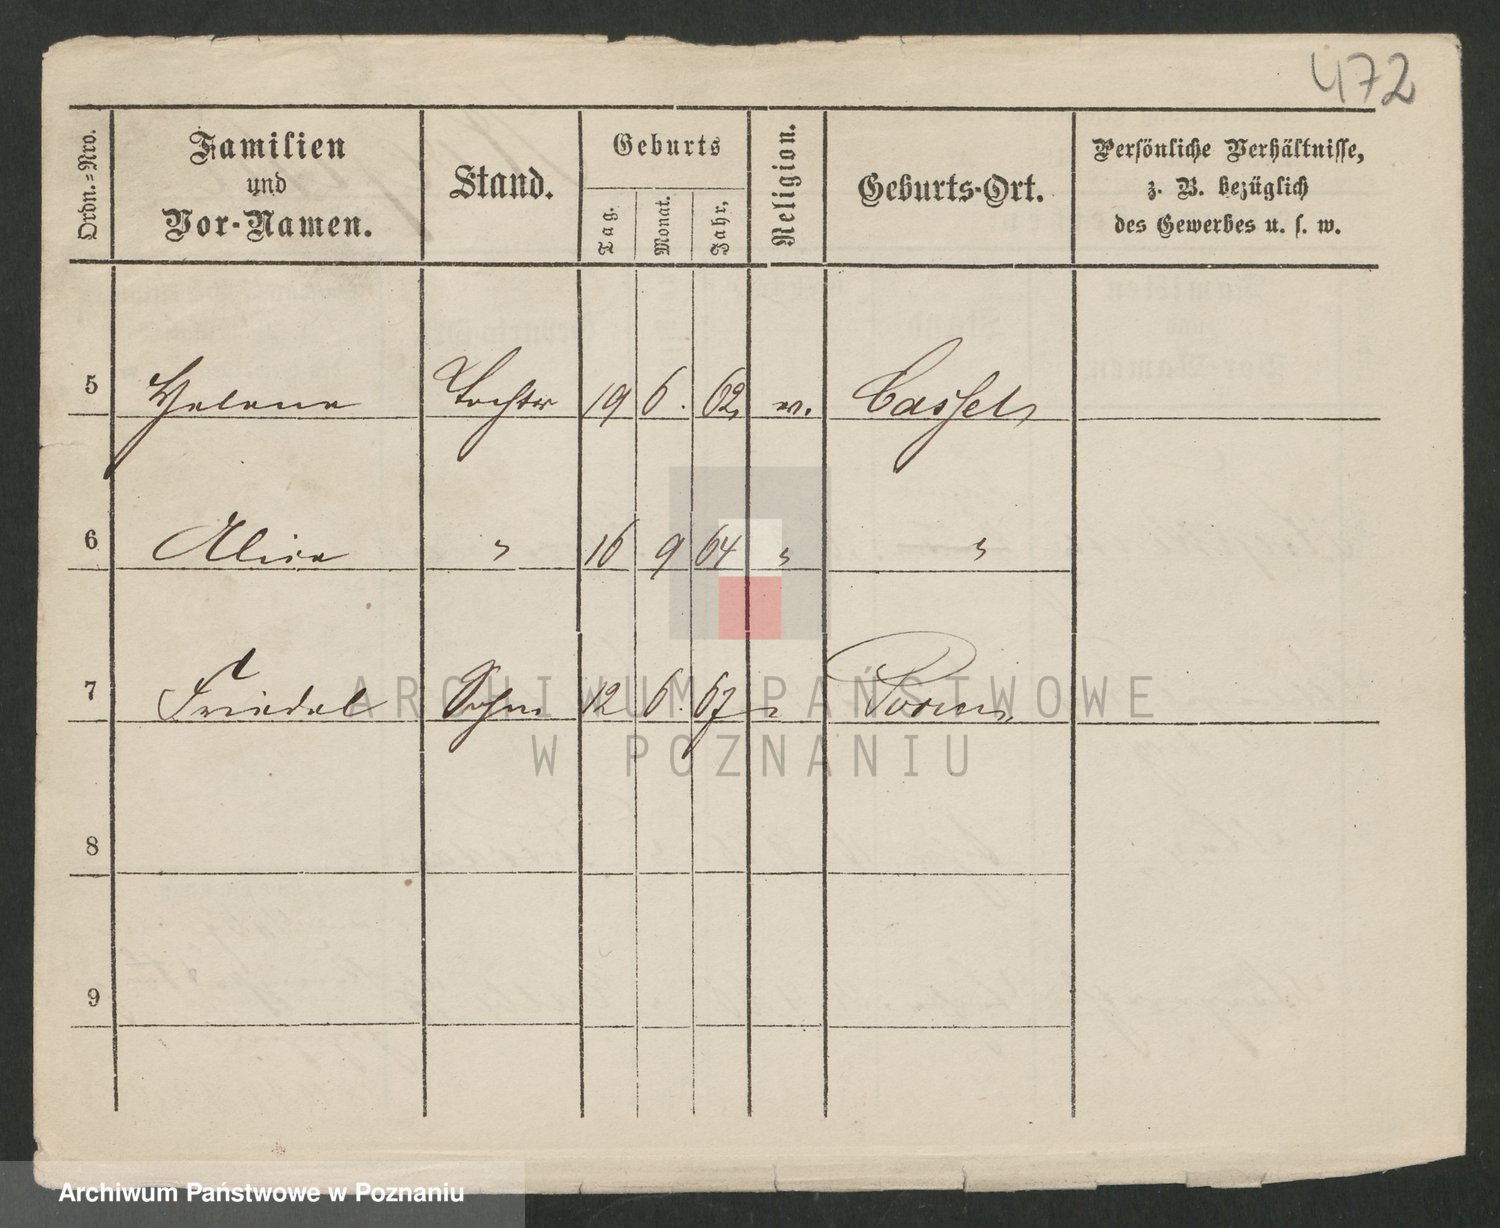 472
Ordn.-Nro. Familien und Vor-Namen. Stand. Geburts Tag. Monat. Jahr. Religion. Geburts-Ort. Persönliche Verhältnisse, z. B. bezüglich des Gewerbes u. s. w.
5 Helene Tochter 19 6. 62 ev. Cassel
6 Alice " 16 9 64 " "
7 Friedel Sohn 12 6. 67 " Posen
8
9
ARCHIWUM PAŃSTWOWE
W POZNANIU
Archiwum Państwowe w Poznaniu